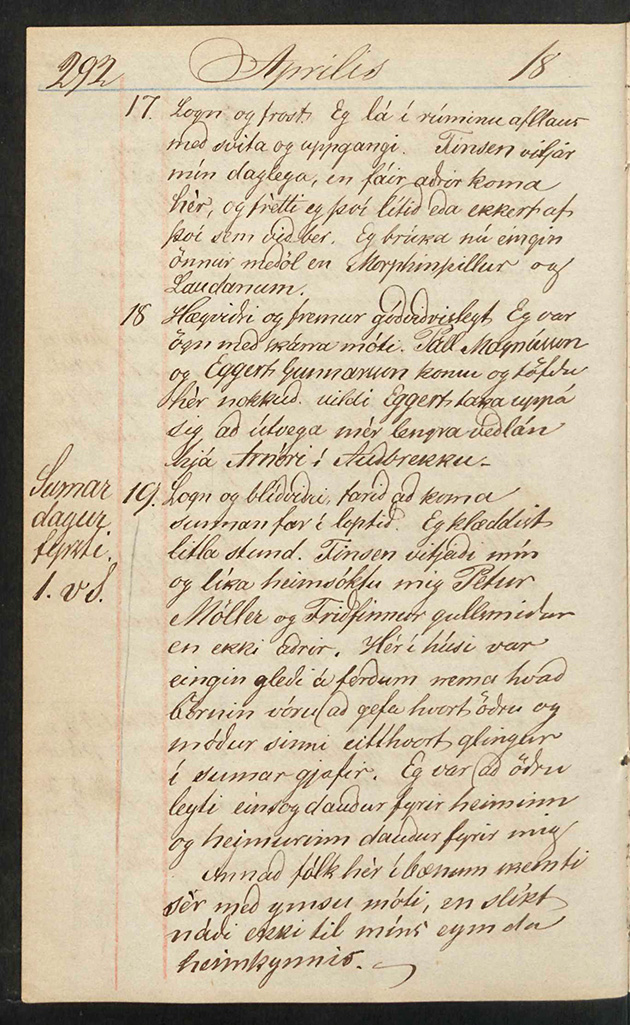 292 Aprilis 18
17. Logn og frost. Eg lá í rúminu afllaus
með svita og uppgangi. Finsen vitjar
mín daglega, en fáir aðrir koma
hèr, og frètti eg því lítið eða ekkert af
því sem við ber. Eg brúka nú eingin
önnur meðöl en Morphinpillur og
Laudanum.
18 Hægviðri og fremur góðviðrislegt. Eg var
ögn með skárra móti. Páll Magnússon
og Eggert Gunnarsson komu og töfðu
hèr nokkuð. vildi Eggert taka uppá
sig að útvega mèr lengra veðlán
hjá Arnóri í Auðbrekku.
Sumar
dagur
fyrsti.
1. v S.
19. Logn og blíðviðri, farið að koma
sunnanfar í loptið. Eg klæddist
litla stund. Finsen vitjaði mín
og líka heimsóktu mig Petur
Möller og Friðfinnur gullsmiður
en ekki aðrir. Hér í húsi var
eingin gleði á ferðum nema hvað
börnin vóru að gefa hvort öðru og
móður sinni eitthvort glingur
í sumar gjafir. Eg var að öðru
leyti eins og dauður fyrir heiminn
og heimurinn dauður fyrir mig
Annað fólk hér í bænum skemti
sér með ymsu móti, en slíkt
náði ekki til míns eymda
heimkynnis.